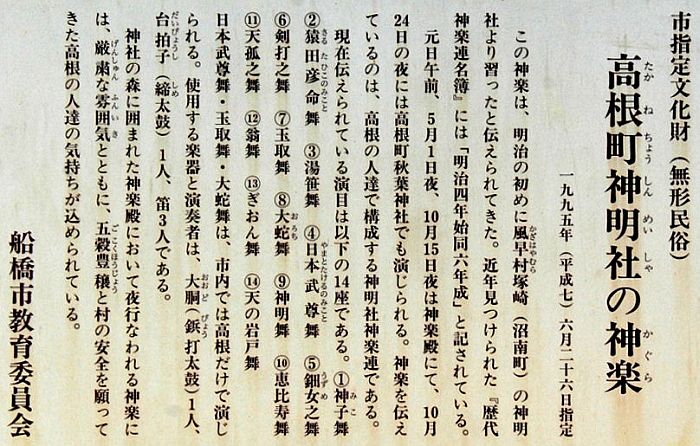 市指定文化財（無形民俗）
高根町神明社の神楽
たか ね ちょう しん めい しゃ かぐら
一九九五年（平成七）六月二十六日指定
この神楽は、明治の初めに風早村塚崎（沼南町）の神明
かざはやむら
社より習ったと伝えられてきた。近年見つけられた『歴代
神楽連名簿』には「明治四年始同六年成」と記されている。
元日午前、5月1日夜、10月15日夜は神楽殿にて、10月
24日の夜には高根町秋葉神社でも演じられる。神楽を伝え
ているのは、高根の人達で構成する神明社神楽連である。
現在伝えられている演目は以下の14座である。①神子舞
みこ
②猿田彦命舞 ③湯笹舞 ④日本武尊舞 ⑤鈿女之舞
さるたひこのみこと やまとたけるのみこと うずめ
⑥剣打之舞 ⑦玉取舞 ⑧大蛇舞 ⑨神明舞 ⑩恵比寿舞
おろち
⑪天狐之舞 ⑫翁舞 ⑬ぎおん舞 ⑭天の岩戸舞
日本武尊舞・玉取舞・大蛇舞は、市内では高根だけで演じ
られる。使用する楽器と演奏者は、大胴（鋲打太鼓）1人、
おおど びょう
台拍子（締太鼓）1人、笛3人である。
だいびょうし しめ
神社の森に囲まれた神楽殿において夜行なわれる神楽に
は、厳粛な雰囲気とともに、五穀豊穣と村の安全を願って
げんしゅん ふんいき ごこくほうじょう
きた高根の人達の気持ちが込められている。
船橋市教育委員会